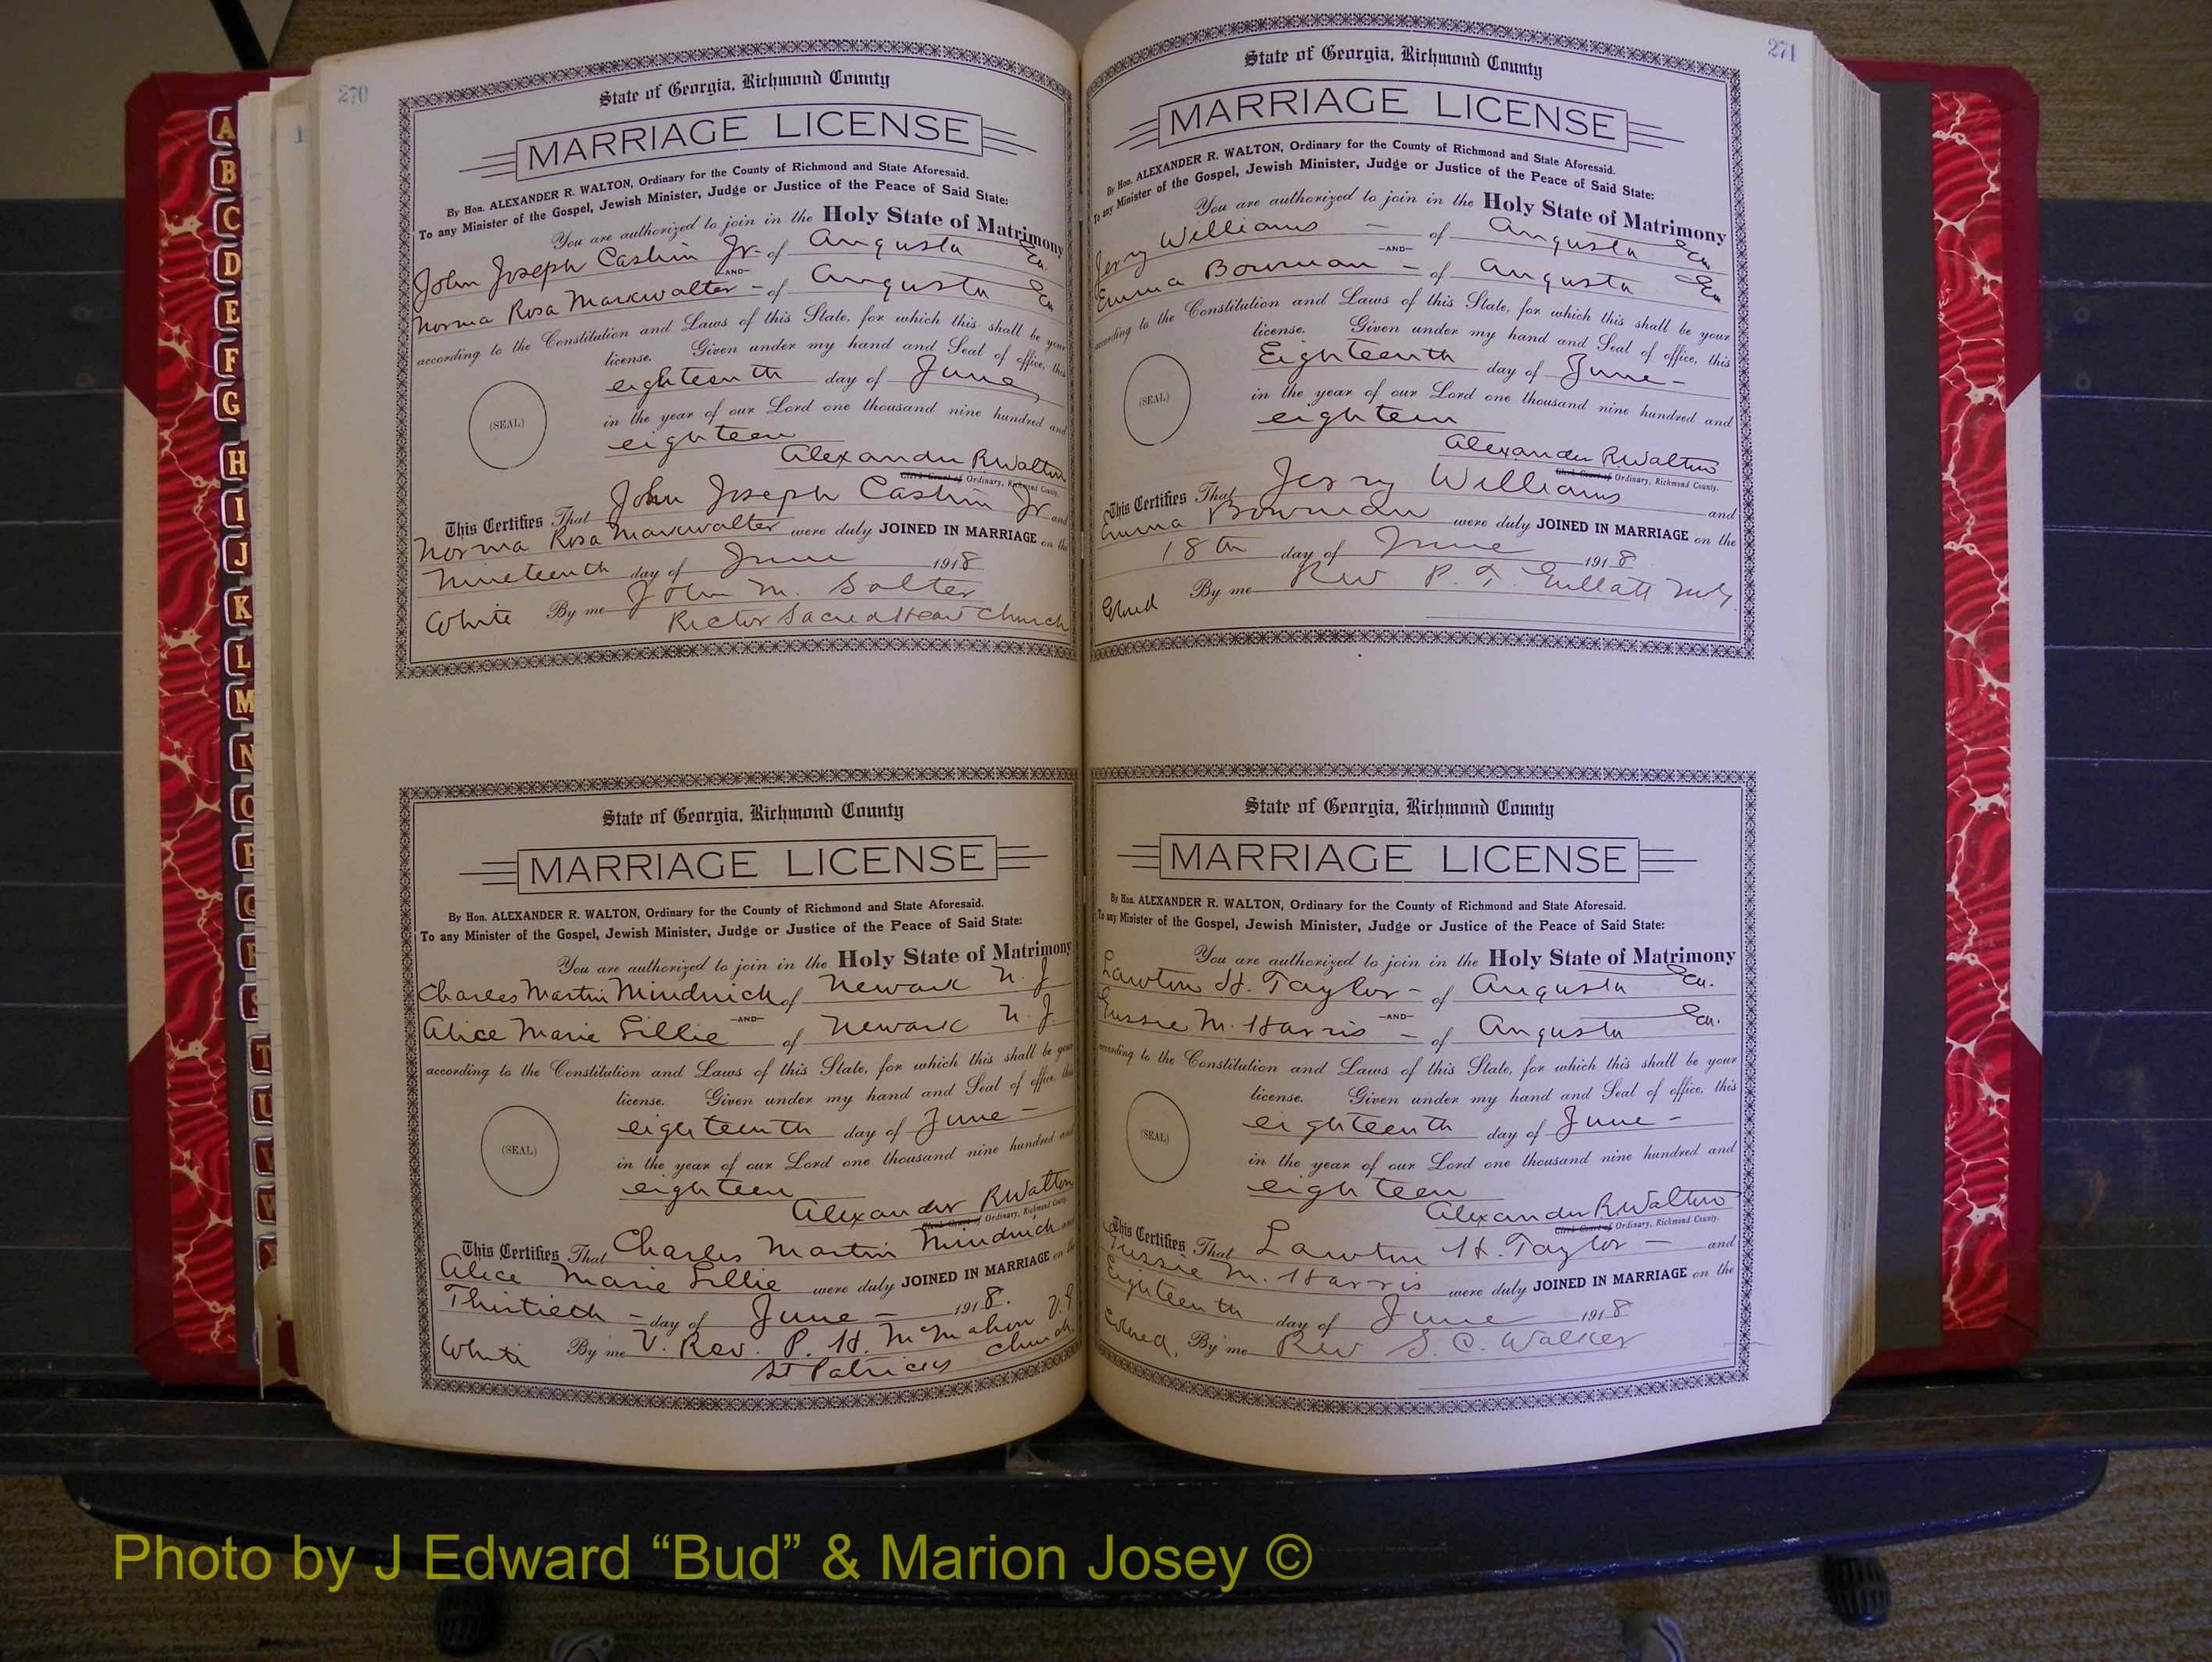 270
State of Georgia, Richmond County
MARRIAGE LICENSE
By Hon. ALEXANDER R. WALTON, Ordinary for the County of Richmond and State Aforesaid.
To any Minister of the Gospel, Jewish Minister, Judge or Justice of the Peace of Said State:
You are authorized to join in the Holy State of Matrimony
John Joseph Cashin Jr. of Augusta Ga
AND
Norma Rosa Markwalter - of Augusta Ga
according to the Constitution and Laws of this State, for which this shall be your
license. Given under my hand and Seal of office, this
eighteenth day of June
(SEAL)
in the year of our Lord one thousand nine hundred and
eighteen
Alexander R Walton
Clerk Court of Ordinary, Richmond County.
This Certifies That John Joseph Cashin Jr and
Norma Rosa Markwalter were duly JOINED IN MARRIAGE on the
Nineteenth day of June 1918
White By me John M. Salter
Rector Sacred Heart Church
State of Georgia, Richmond County
MARRIAGE LICENSE
By Hon. ALEXANDER R. WALTON, Ordinary for the County of Richmond and State Aforesaid.
To any Minister of the Gospel, Jewish Minister, Judge or Justice of the Peace of Said State:
You are authorized to join in the Holy State of Matrimony
Charles Martin Mindnich of Newark N. J.
AND
Alice Marie Lillie of Newark N. J.
according to the Constitution and Laws of this State, for which this shall be your
license. Given under my hand and Seal of office, this
eighteenth day of June -
(SEAL)
in the year of our Lord one thousand nine hundred and
eighteen
Alexander R Walton
Clerk Court of Ordinary, Richmond County.
This Certifies That Charles Martin Mindnich and
Alice Marie Lillie were duly JOINED IN MARRIAGE on the
Thirtieth - day of June - 1918.
White By me V. Rev. P. H. McMahon V.F.
St Patricks Church
271
State of Georgia, Richmond County
MARRIAGE LICENSE
By Hon. ALEXANDER R. WALTON, Ordinary for the County of Richmond and State Aforesaid.
To any Minister of the Gospel, Jewish Minister, Judge or Justice of the Peace of Said State:
You are authorized to join in the Holy State of Matrimony
Jerry Williams - of Augusta Ga
AND
Emma Bowman - of Augusta Ga
according to the Constitution and Laws of this State, for which this shall be your
license. Given under my hand and Seal of office, this
Eighteenth day of June -
(SEAL)
in the year of our Lord one thousand nine hundred and
eighteen
Alexander R. Walton
Clerk Court of Ordinary, Richmond County.
This Certifies That Jerry Williams and
Emma Bowman were duly JOINED IN MARRIAGE on the
18th day of June 1918
Colored By me Rev P. T. Gullatt
State of Georgia, Richmond County
MARRIAGE LICENSE
By Hon. ALEXANDER R. WALTON, Ordinary for the County of Richmond and State Aforesaid.
To any Minister of the Gospel, Jewish Minister, Judge or Justice of the Peace of Said State:
You are authorized to join in the Holy State of Matrimony
Lawton H. Taylor - of Augusta Ga.
AND
Gussie M. Harris - of Augusta Ga.
according to the Constitution and Laws of this State, for which this shall be your
license. Given under my hand and Seal of office, this
eighteenth day of June -
(SEAL)
in the year of our Lord one thousand nine hundred and
eighteen
Alexander R Walton
Clerk Court of Ordinary, Richmond County.
This Certifies That Lawton H. Taylor - and
Gussie M. Harris were duly JOINED IN MARRIAGE on the
Eighteenth day of June 1918
Colored, By me Rev S. C. Walker
A
B
C
D
E
F
G
H
I
J
K
L
M
N
O
P
Q
R
S
T
U
V
W
Photo by J Edward “Bud” & Marion Josey ©